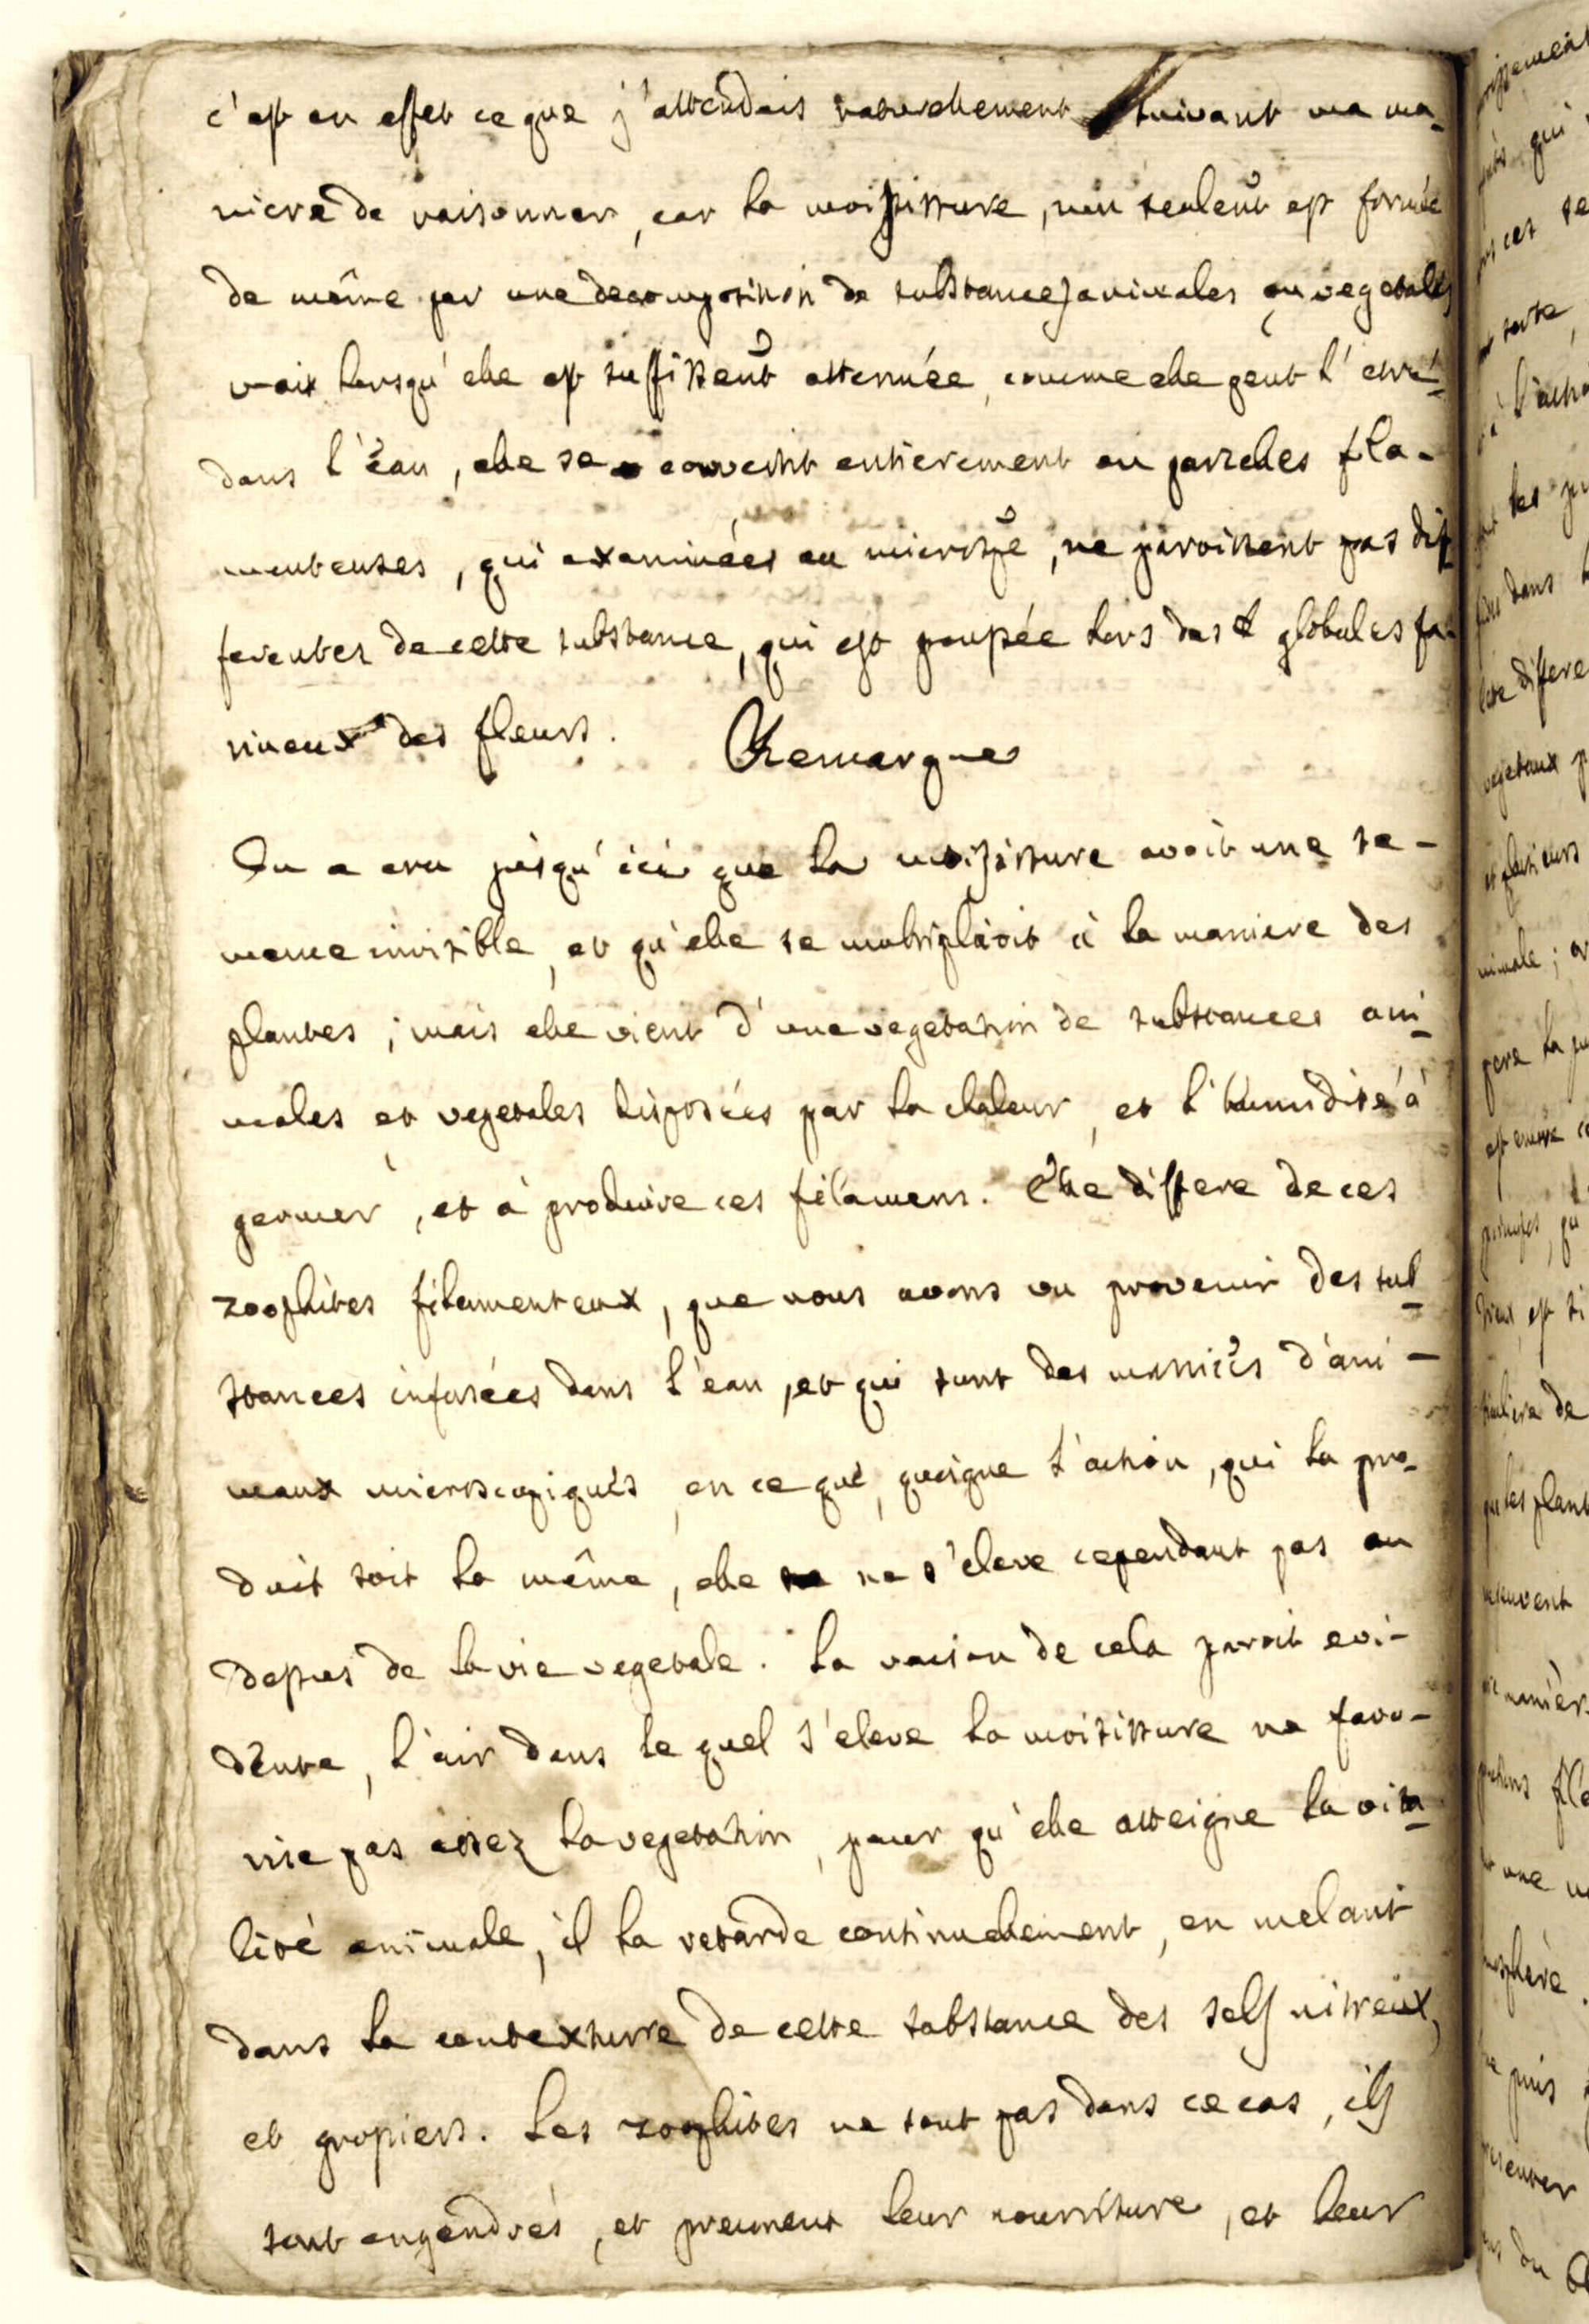 c'est en effet ce que j'attendais naturellement suivant ma ma-
niere de raisonner, car la moisissure, non seulem̃t est formée
de même par une decomposition de substances animales ou vegetales
mais lorsqu'elle est suffisem̃t attenuée, comme elle peut l'etre
dans l'eau, elle se convertit entierement en parcelles fila-
menteuses, qui examinées au microspe, ne paroissent pas dif
ferentes de cette substance, qui est poussée hors des globules fa-
rineux des fleurs. Remarques
On a cru jusqu'ici que la moisissure avoit une se-
mence invisible, et qu'elle se multiplioit à la maniere des
plantes; mais elle vient d'une vegetation de substances ani-
males et vegetales disposées par la chaleur, et l'humidité à
germer, et à produire ces filamens. Elle differe de ces
zoophites filamenteux, que nous avons vu provenir des sub-
stances infusées dans l'eau, et qui sont des matrices d'ani-
maux microscopiques, en ce que, quoique l'action, qui la pro-
duit soit la même, elle ne s'eleve cependant pas au
dessus de la vie vegetale. La raison de cela paroit evi-
dente, l'air dans le quel s'eleve la moisissure ne favo-
rise pas assez la vegetation, pour qu'elle atteigne la vita-
lité animale, il la retarde continuellement, en melant
dans la contexture de cette substance des sels nitreux,
et grossiers. Les zoophites ne sont pas dans ce cas, ils
sont engendrés, et prennent leur nourriture, et leur